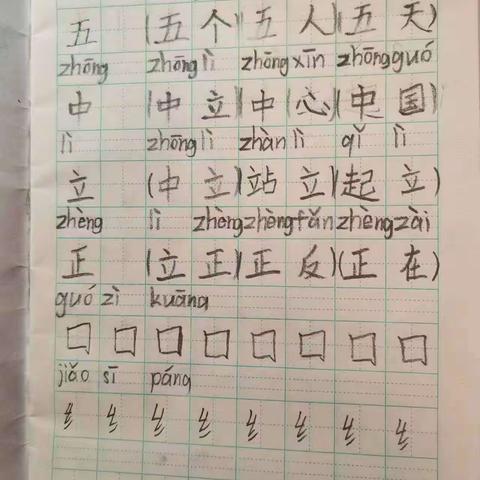 五 (五个)(五人)(五天)
zhōng zhōng lì zhōng xīn zhōng guó
中 (中立)(中心)(中国)
lì zhōng lì zhàn lì qǐ lì
立 (中立)(站立)(起立)
zhèng lì zhèng zhèng fǎn zhèng zài
正 (立正)(正反)(正在)
guó zì kuāng
囗 囗 囗 囗 囗 囗 囗 囗
jiǎo sī páng
纟 纟 纟 纟 纟 纟 纟 纟